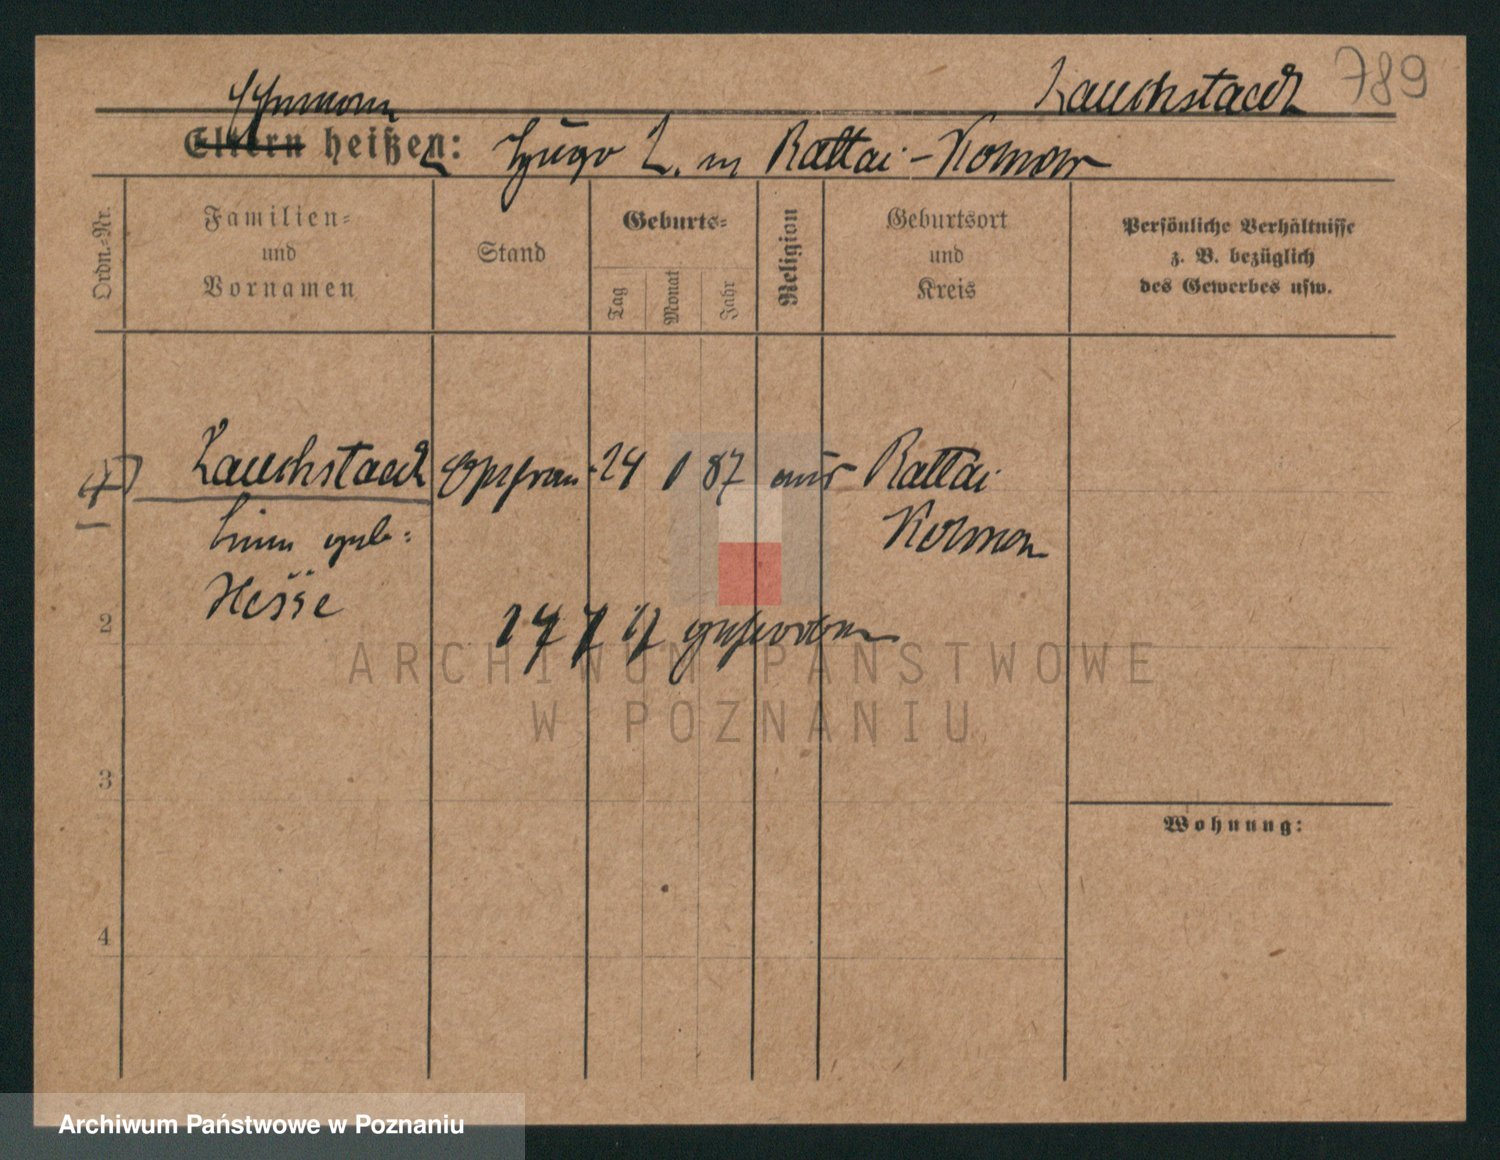 Lauchstaedt 789
Ehemann
Eltern heißen: Hugo L. in Rattai-Kolmar
Ordn.-Nr.
Familien-
und
Vornamen
Stand
Geburts-
Tag
Monat
Jahr
Religion
Geburtsort
und
Kreis
Persönliche Verhältnisse
z. B. bezüglich
des Gewerbes usw.
Lauchstaedt 24 87 Rattai
geb: Kolmar
Hesse
2
17 7 17 gestorben
ARCHIWUM PAŃSTWOWE
W POZNANIU
3
Wohnung:
4
Archiwum Państwowe w Poznaniu